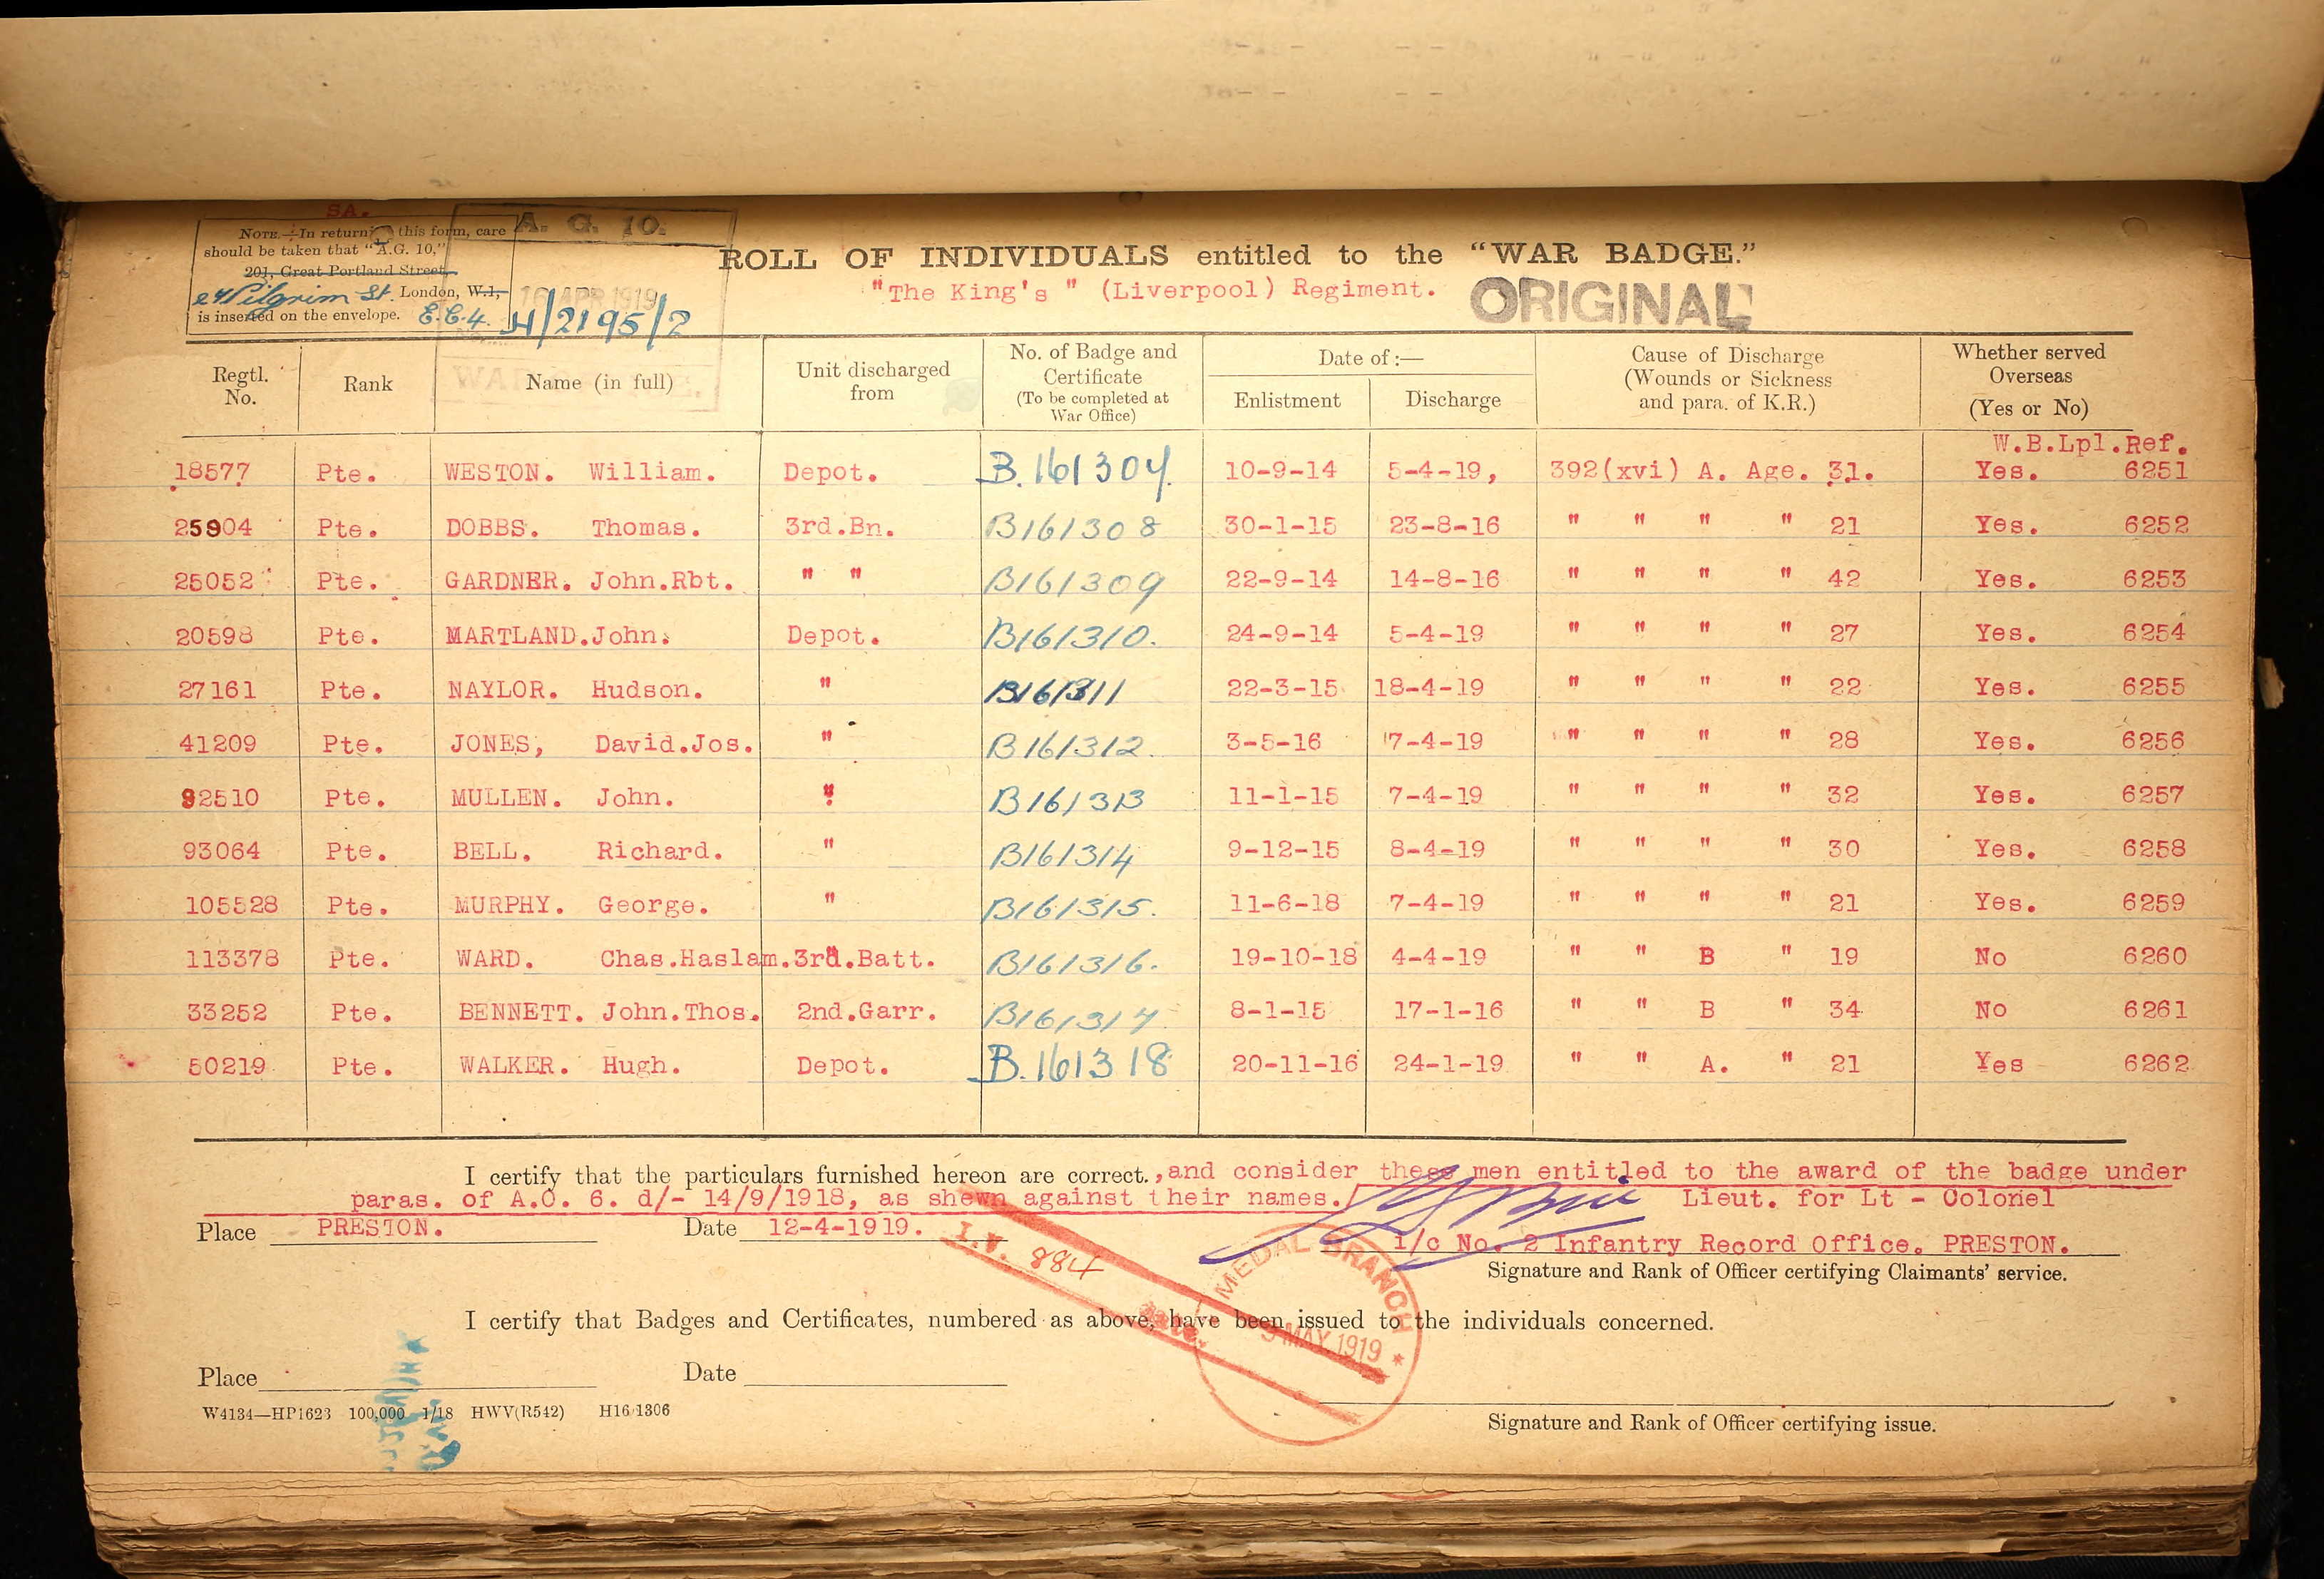 SA.
A. G. 10.
NOTE.—In returning this form, care
should be taken that "A.G. 10,"
201, Great Portland Street,
24 Pilgrim St. London, W.1,
is inserted on the envelope. E.C.4.
16 APR 1919
H/2195/2
ROLL OF INDIVIDUALS entitled to the "WAR BADGE."
"The King's " (Liverpool) Regiment. ORIGINAL
Regtl. No. Rank Name (in full) Unit discharged from No. of Badge and Certificate (To be completed at War Office) Date of:— Enlistment Discharge Cause of Discharge (Wounds or Sickness and para. of K.R.) Whether served Overseas (Yes or No)
W.B.Lpl.Ref.
18577 Pte. WESTON. William. Depot. B.161304 10-9-14 5-4-19, 392(xvi) A. Age. 31. Yes. 6251
25904 Pte. DOBBS. Thomas. 3rd.Bn. B161308 30-1-15 23-8-16 " " " " 21 Yes. 6252
25052 Pte. GARDNER. John.Rbt. " " B161309 22-9-14 14-8-16 " " " " 42 Yes. 6253
20598 Pte. MARTLAND.John. Depot. B161310. 24-9-14 5-4-19 " " " " 27 Yes. 6254
27161 Pte. NAYLOR. Hudson. " B161311 22-3-15 18-4-19 " " " " 22 Yes. 6255
41209 Pte. JONES, David.Jos. " B161312. 3-5-16 7-4-19 " " " " 28 Yes. 6256
92510 Pte. MULLEN. John. " B161313 11-1-15 7-4-19 " " " " 32 Yes. 6257
93064 Pte. BELL. Richard. " B161314 9-12-15 8-4-19 " " " " 30 Yes. 6258
105528 Pte. MURPHY. George. " B161315. 11-6-18 7-4-19 " " " " 21 Yes. 6259
113378 Pte. WARD. Chas.Haslam. 3rd.Batt. B161316. 19-10-18 4-4-19 " " B " 19 No 6260
33252 Pte. BENNETT. John.Thos. 2nd.Garr. B161317 8-1-15 17-1-16 " " B " 34 No 6261
50219 Pte. WALKER. Hugh. Depot. B.161318 20-11-16 24-1-19 " " A. " 21 Yes 6262
I certify that the particulars furnished hereon are correct.,and consider these men entitled to the award of the badge under
paras. of A.O. 6. d/- 14/9/1918, as shewn against their names. Lieut. for Lt - Colonel
Place PRESTON. Date 12-4-1919. i/c No. 2 Infantry Record Office. PRESTON.
Signature and Rank of Officer certifying Claimants' service.
I.V. 884
MEDAL BRANCH
MAY 1919
I certify that Badges and Certificates, numbered as above, have been issued to the individuals concerned.
Place Date
W4134—HP1623 100,000 1/18 HWV(R542) H16/1306
Signature and Rank of Officer certifying issue.